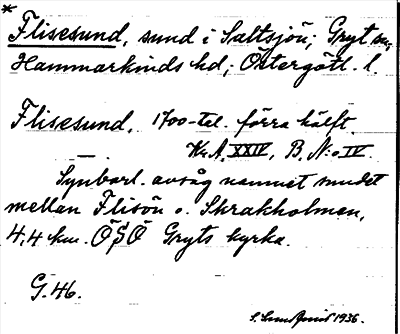 *
Flisesund, sund i Saltsjön; Gryt sn;
Hammarkinds hd; Östergötl. l.
Flisesund, 1700-tal. förra hälft.
Kr.A. XXIV, B, N:o IV.
Synbarl. avsåg namnet sundet
mellan Flisön o. Skrakholmen,
4,4 km. ÖSÖ Gryts kyrka.
G. 46.
1936.